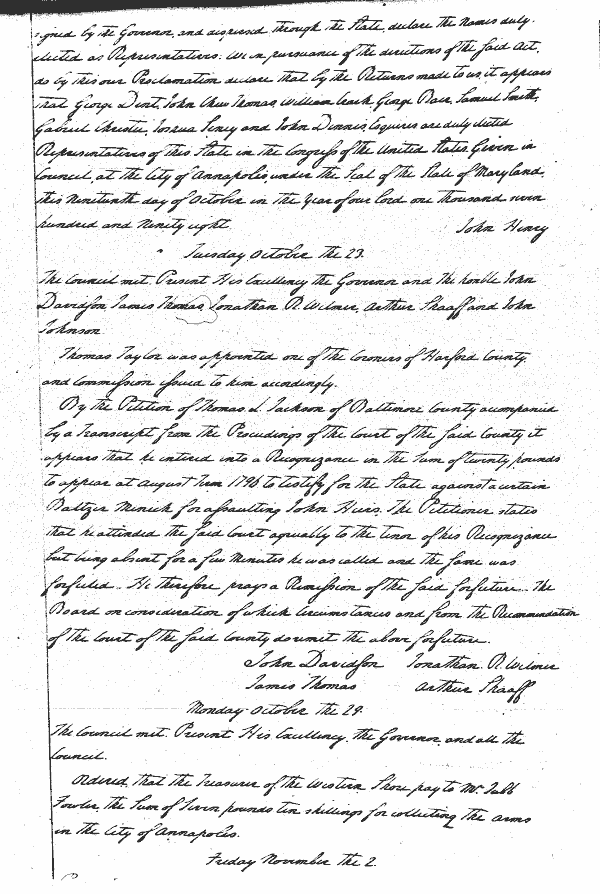 signed by the Governor, and dispersed through the State, declare the Names duly
elected as Representatives. We in pursuance of the directions of the said Act,
do by this our Proclamation declare that by the Returns made to us it appears
that George Dent, John Chew Thomas, William Craik, George Baer, Samuel Smith,
Gabriel Christie, Joshua Seney and John Dennis, Esquires are duly elected
Representatives of this State in the Congress of the United States, Given in
Council, at the City of Annapolis, under the Seal of the State of Maryland,
this Nineteenth day of October in the Year of our Lord one thousand seven
hundred and Ninety eight
John Henry
Tuesday October the 23.
The Council met. Present His Excellency the Governor and the honble John
Davidson, James Thomas, Jonathan R. Wilmer, Arthur Shaaff and John
Johnson
Thomas Taylor was appointed one of the Coroners of Harford County
and Commission issued to him accordingly.
By the Petition of Thomas L. Jackson of Baltimore County accompanied
by a Transcript from the Proceedings of the Court of the said County it
appears that he entered into a Recognizance in the Sum of twenty pounds
to appear at August Term 1796 to testify for the State against a certain
Baltzer Minick for assaulting John Hiers. The Petitioner states
that he attended the said Court agreeably to the tenor of his Recognizance
but being absent for a few Minutes he was called and the same was
forfeited. He therefore prays a Remission of the said forfeiture. The
Board on consideration of which Circumstances and from the Recommendation
of the Court of the said County do remit the above forfeiture.
John Davidson Jonathan R. Wilmer
James Thomas Arthur Shaaff
Monday October the 29.
The Council met. Present His Excellency the Governor and all the
Council.
Ordered, that the Treasurer of the Western Shore pay to Mr. Jubb
Fowler, the Sum of Seven pounds ten shillings for collecting the arms
in the City of Annapolis.
Friday November the 2